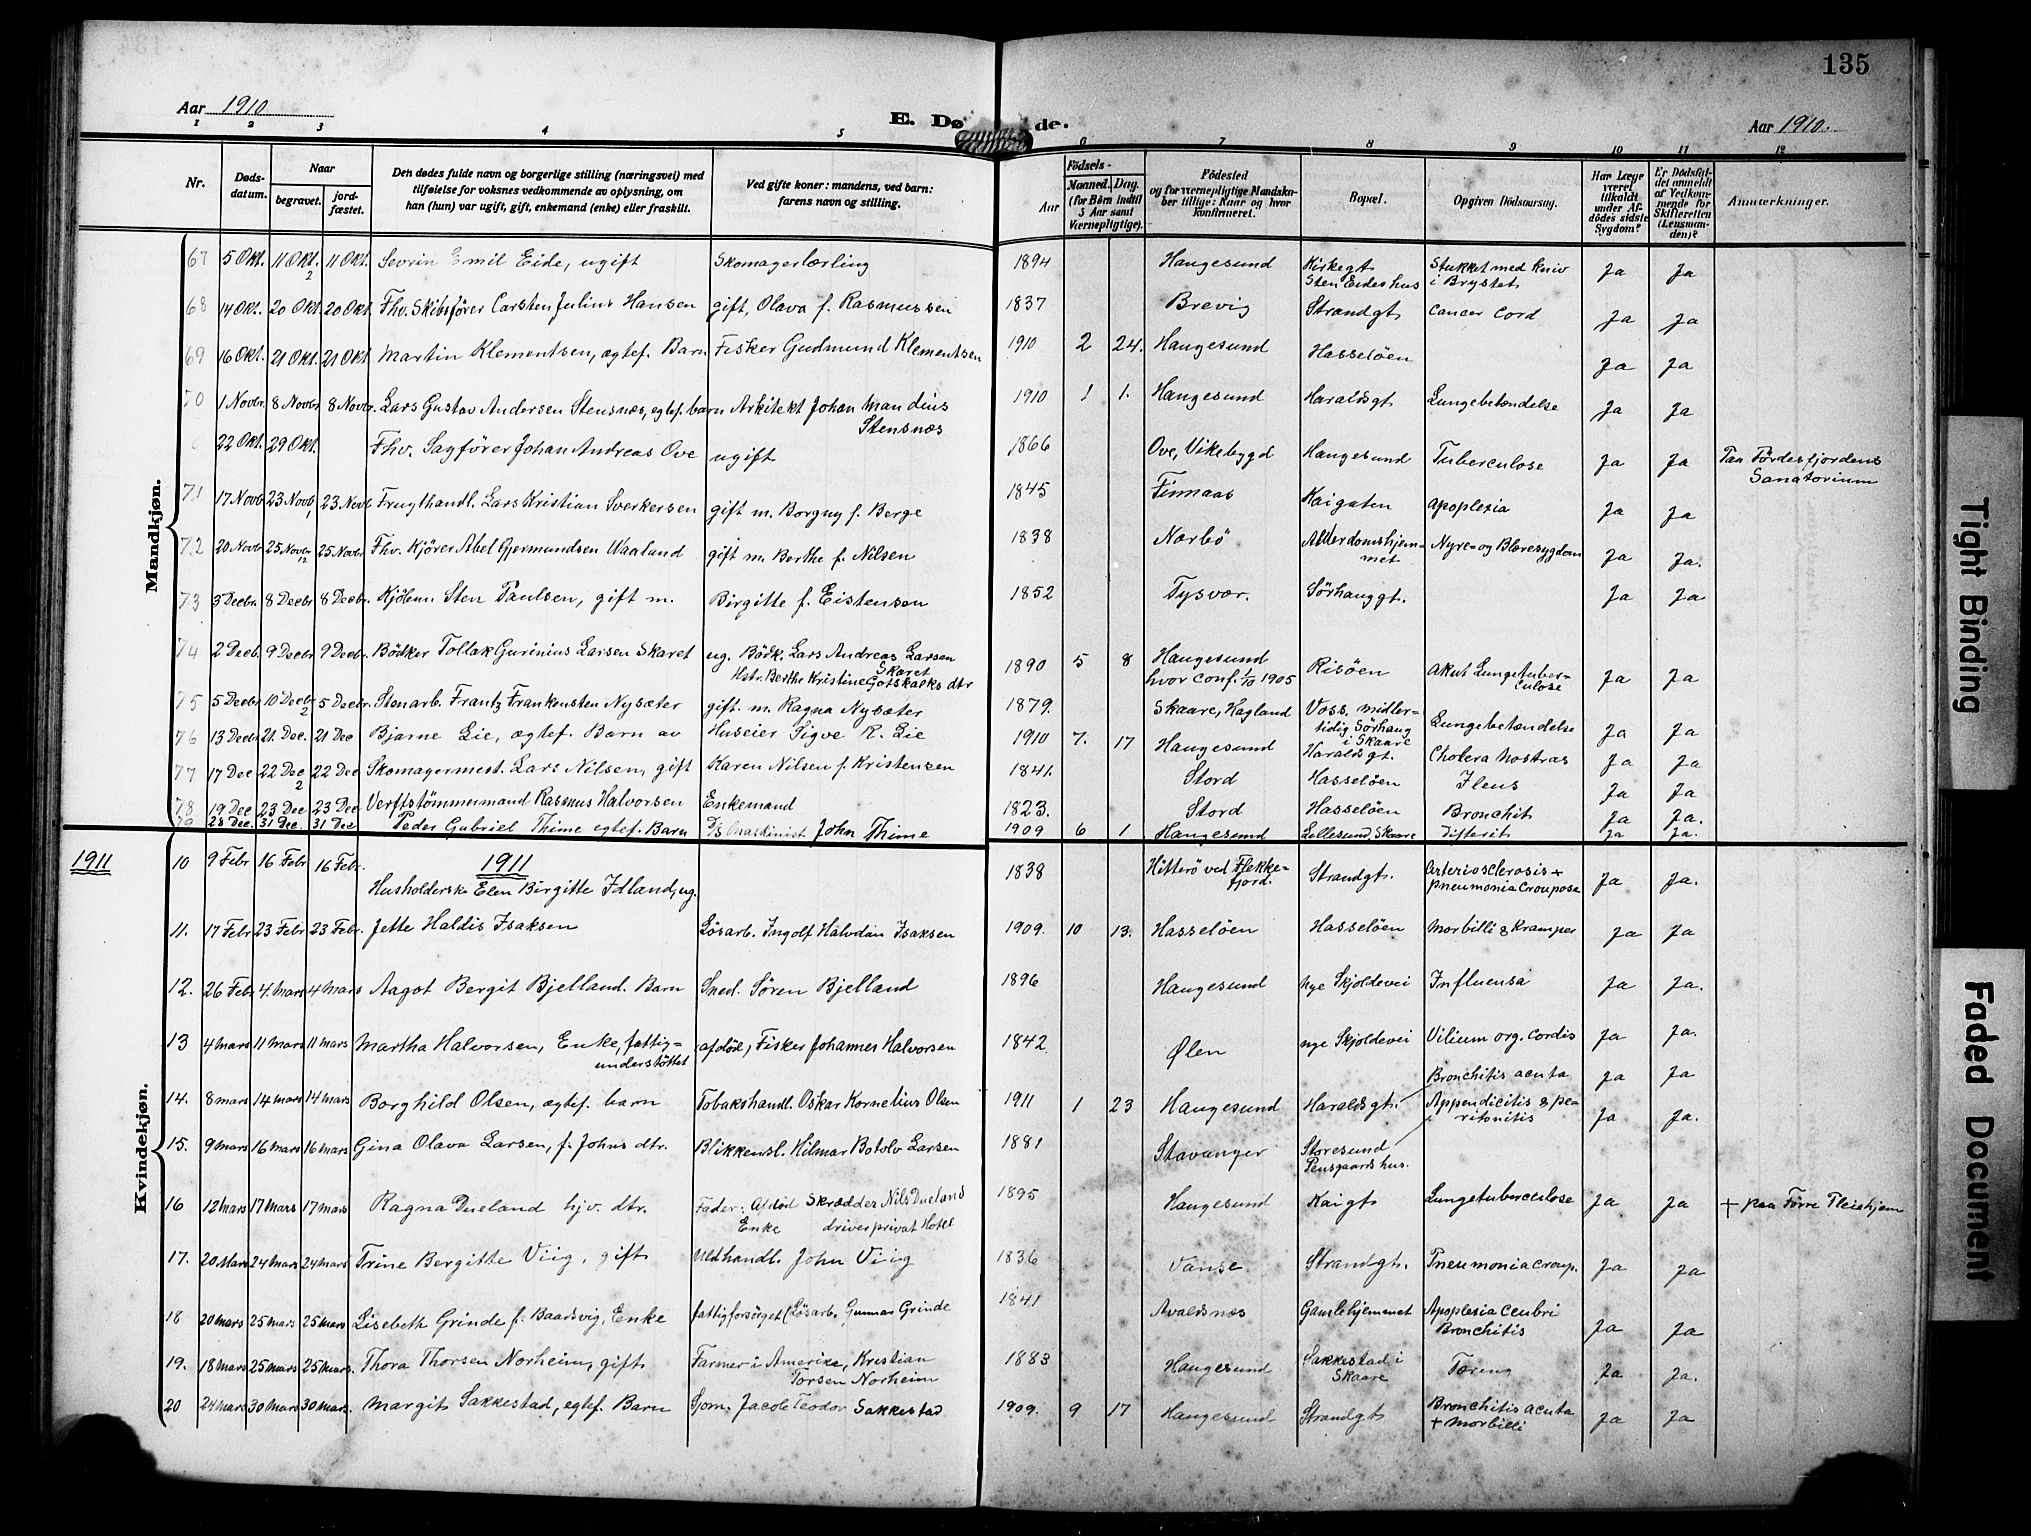 135
Aar 1910
E. Dø de.
Aar 1910.
1 2 3 4 5 6 7 8 9 10 11 12
Nr.
Døds-
datum.
Naar
begravet.
jord-
fæstet.
Den dødes fulde navn og borgerlige stilling (næringsvei) med
tilføielse for voksnes vedkommende av oplysning, om
han (hun) var ugift, gift, enkemand (enke) eller fraskilt.
Ved gifte koner: mandens, ved barn:
farens navn og stilling.
Fødsels-
Aar
Maaned. Dag.
(for Børn indtil
5 Aar samt
Værnepligtige).
Fødested
og for værnepligtige Mandska-
ber tillige: Naar og hvor
konfirmeret.
Bopæl.
Opgiven Dødsaarsag.
Har Læge
været
tilkaldt
under Af-
dødes sidste
Sygdom?
Er Dødsfal-
det anmeldt
af Vedkom-
mende for
Skifteretten
(Lensman-
den)?
Anmærkninger.
Mandkjøn.
67 5 Okt. 11 Okt. 11 Okt. Sevrin Emil Eide, ugift Skomagerlærling 1894 Haugesund Kirkegt Stukket med kniv Ja Ja
2 Sten Eides hus i Brystet
68 14 Okt. 20 Okt. 20 Okt. Fhv. Skibsfører Carsten Julius Hansen gift, Olava f. Rasmussen 1837 Brevig Strandgt Cancer Cord Ja Ja
69 16 Okt. 21 Okt. 21 Okt Martin Klementsen, ægtef. Barn Fisker Gudmund Klementsen 1910 2 24. Haugesund Hasseløen Ja Ja
70 1 Novbr. 8 Novbr 8 Novbr. Lars Gustav Andersen Stensnæs, egtef. barn Arkitekt Johan Mandius 1910 1 1. Haugesund Haraldsgt Lungebetændelse Ja Ja
Stensnæs
22 Okt. 29 Okt. Fhv. Sagfører Johan Andreas Ove ugift 1866 Ove, Vikebygd Haugesund Tuberculose Ja Ja Paa Førdesfjordens
Sanatorium
71 17 Novbr 23 Novb, 23 Novb Frugthandl. Lars Kristian Sverkersen gift m. Borgny f. Berge 1845 Finnaas Kaigaten Apoplexia Ja Ja
72 20 Novbr 25 Novbr 25 Novbr Fhv. Kjører Abel Gjermundsen Waaland gift m. Berthe f. Nilsen 1838 Nærbö Alderdomshjem- Nyre- og Blæresygdom Ja Ja.
12 met
73 3 Decbr. 8 Decbr 8 Decbr. Kjöbm Sten Paulsen, gift m. Birgitte f. Eistensen 1852 Tysvær. Sörhauggt. Ja Ja
74 2 Decb. 9 Decbr 9 Decbr. Bödker Tollak Gurinius Larsen Skaret ug. Bödk. Lars Andreas Larsen 1890 5 8 Haugesund Risöen Akut Lungetuber- Ja Ja
Skaret
Hstr. Berthe Kristine Gotskalks dtr hvor conf. 1/10 1905 culose
75 5 Decbr 10 Decbr 5 Decbr. Stenarb. Frantz Frankensten Nysæter gift. m. Ragna Nysæter 1879. Skaare, Hagland Voss, midler- Lungebetændelse Ja Ja
2 tidig Sörhaug
i Skaare
76 13 Decbr 21. Dec. 21 Dec Bjarne Lie, ægtef. Barn av Huseier Sigve R. Lie 1910 7. 17 Haugesund Haraldsgt. Cholera nostras Ja Ja
77 17 Dec 22 Dec 22 Dec Skomagermest. Lars Nilsen, gift Karen Nilsen f. Kristensen 1841. Stord Hasseløen Ileus Ja Ja
2
78 19 Dec 23 Dec 23 Dec Verftstømmermand Rasmus Halvorsen Enkemand 1823. Stord Hasseløen Bronchit Ja Ja.
79 28 Dec. 31 Dec. 31 Dec Peder Gabriel Thime egtef. Barn D/S Maskinist John Thime 1909 6 1 Haugesund Lillesund, Skaare Difterit Ja Ja.
1911
Kvindekjøn.
1911
10 9 Febr 16 Febr 16 Febr. Husholderske Elen Birgitte Idland, ug. 1838 Hitterö ved Flekke- Strandgt. Arteriosclerosis + Ja Ja.
fjord. pneumonia Crouposa
11. 17 Febr 23 Febr 23 Febr. Jette Haldis Isaksen Løsarb. Ingolf Halvdan Isaksen 1909. 10 13. Hasseløen Hasseløen Morbilli & Kramper Ja Ja
12. 26 Febr 4. Mars 4 Mars Aagot Bergit Bjelland. Barn Sned. Søren Bjelland 1896 Haugesund nye Skjoldevei Influensa Ja Ja.
13 4 Mars 11 Mars 11 Mars Martha Halvorsen, Enke, fattig- afdød, Fisker Johannes Halvorsen 1842 Ølen nye Skjoldevei Vilium org. Cordis Ja Ja.
understöttet
14. 8 mars 14 mars 14 mars Borghild Olsen, ægtef. barn Tobakshandl. Oskar Kornelius Olsen 1911 1 23 Haugesund Haraldsgt. Bronchitis acuta Ja Ja
15. 9 mars 16 mars 16 mars Gina Olava Larsen, f. Johns dtr. Blikkensl. Hilmar Botolv Larsen 1881 Stavanger Storesund Appendicitis & pe- Ja Ja.
Pensgaards hus. ritonitis
16 12 Mars 17 Mars 17 Mars Ragna Dueland hjv. dtr. Fader: Afdöd Skrædder Nils Dueland 1895 Haugesund Kaigt Lungetuberculose Ja Ja + paa Förre Pleiehjem
Enke driver privat Hotel
17. 20 Mars 24 mars 24 mars Trine Bergitte Viig, gift Uldhandl. John Viig 1836 Vanse. Strandgt. Pneumonia croup. Ja Ja
18 20 Mars 25 Mars 25 Mars. Lisebeth Grinde f. Baardsvig, Enke fattigforsørget (Løsarb. Gunnar Grinde 1841 Avaldsnæs Gamlehjemmet Apoplexia Ceubri Ja Ja
Bronchitis
19. 18 Mars 25 Mars 25 Mars. Thora Thorsen Norheim, gift Farmer i Amerika, Kristian 1883 Haugesund Sakkestad i Tæring Ja Ja.
Torsen Norheim Skaare
20 24 mars 30 mars 30 mars. Margit Sakkestad, egtef. Barn Sjom. Jacob Teodor Sakkestad 1909. 9 17 Haugesund Strandgt Bronchitis acuta Ja Ja
+ Morbilli
Tight Binding
Faded Document